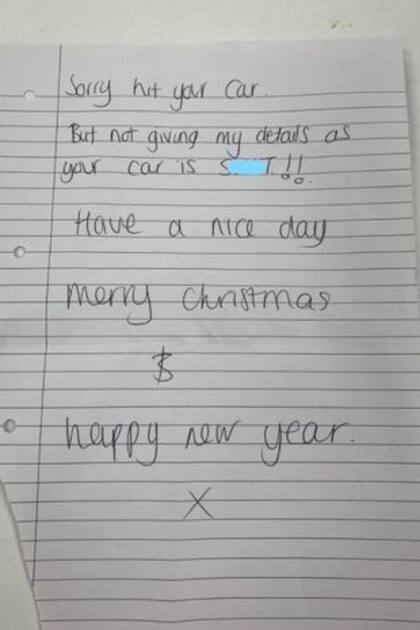 Sorry hit your car.
But not giving my details as
your car is S T!!
Have a nice day
merry christmas
$
happy new year.
X